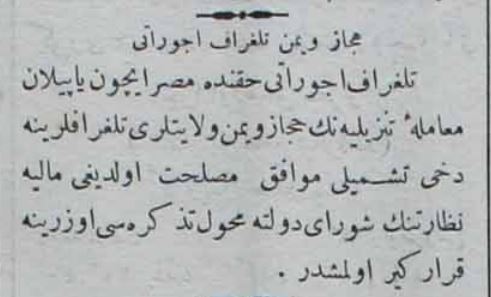 حجاز ویمن تلغراف اجوراتی
تلغراف اجوراتی حقنده مصر ایچون یاپیلان
معاملهٔ تنزیلیه نك حجاز ویمن ولایتلری تلغرافلرینه
دخی تشمیلی موافق مصلحت اولدیغی مالیه
نظارتنك شورای دولته محول تذکره سی اوزرینه
قرارکیر اولمشدر .